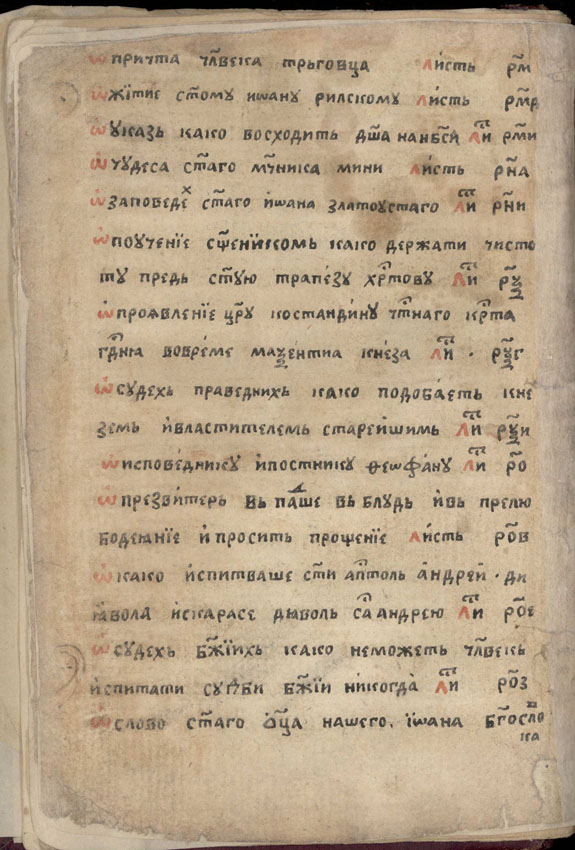 ѡ҆ причта чл҃века тръговца листь рм҃
ѡ҆ житїе ст҃ому иѡану рилскому листь рм҃д
ѡ҆ указь како восходить дш҃а на нб҃си лиⷭ҇т рм҃и
ѡ҆ чудеса ст҃аго мч҃ника мини листь рн҃а
ѡ҆ заповедеⷯ ст҃аго иѡана златоустаго лиⷭ҇т рн҃и
ѡ҆ поученїе сщ҃еникомь како держати чисто
ту предь ст҃ую трапезу хрⷭ҇тову лиⷭ҇т рѯ҃
ѡ҆ проявленїе цр҃у костандину чⷭ҇тнаго крⷭ҇та
гдⷭ҇ня вовреме маѯентиа кнеза лиⷭ҇т · рѯ҃г
ѡ҆ судехь праведнихь како подобаеть кне
земь и҆властителемь старейшимь лиⷭ҇т рѯ҃и
ѡ҆ исповеднику и҆постнику ѳеѡфану лиⷭ҇т ро҃
ѡ҆ презвитерь вь паⷣше вь блудь и҆вь прелю
бодеꙗнїе и҆ просить прощенїе листь ро҃в
ѡ҆ како и҆спитваше ст҃и апⷭ҇толь андрей · ди
ꙗвола и҆скарасе дꙗволь са андрею лиⷭ҇т ро҃е
ѡ҆ судехь бж҃їихь како неможеть чл҃векь
и҆спитати судби бж҃їи никогда лиⷭ҇т ро҃з
ѡ҆ слово ст҃аго ѻц҃а нашего. їѡана бг҃осло
ва